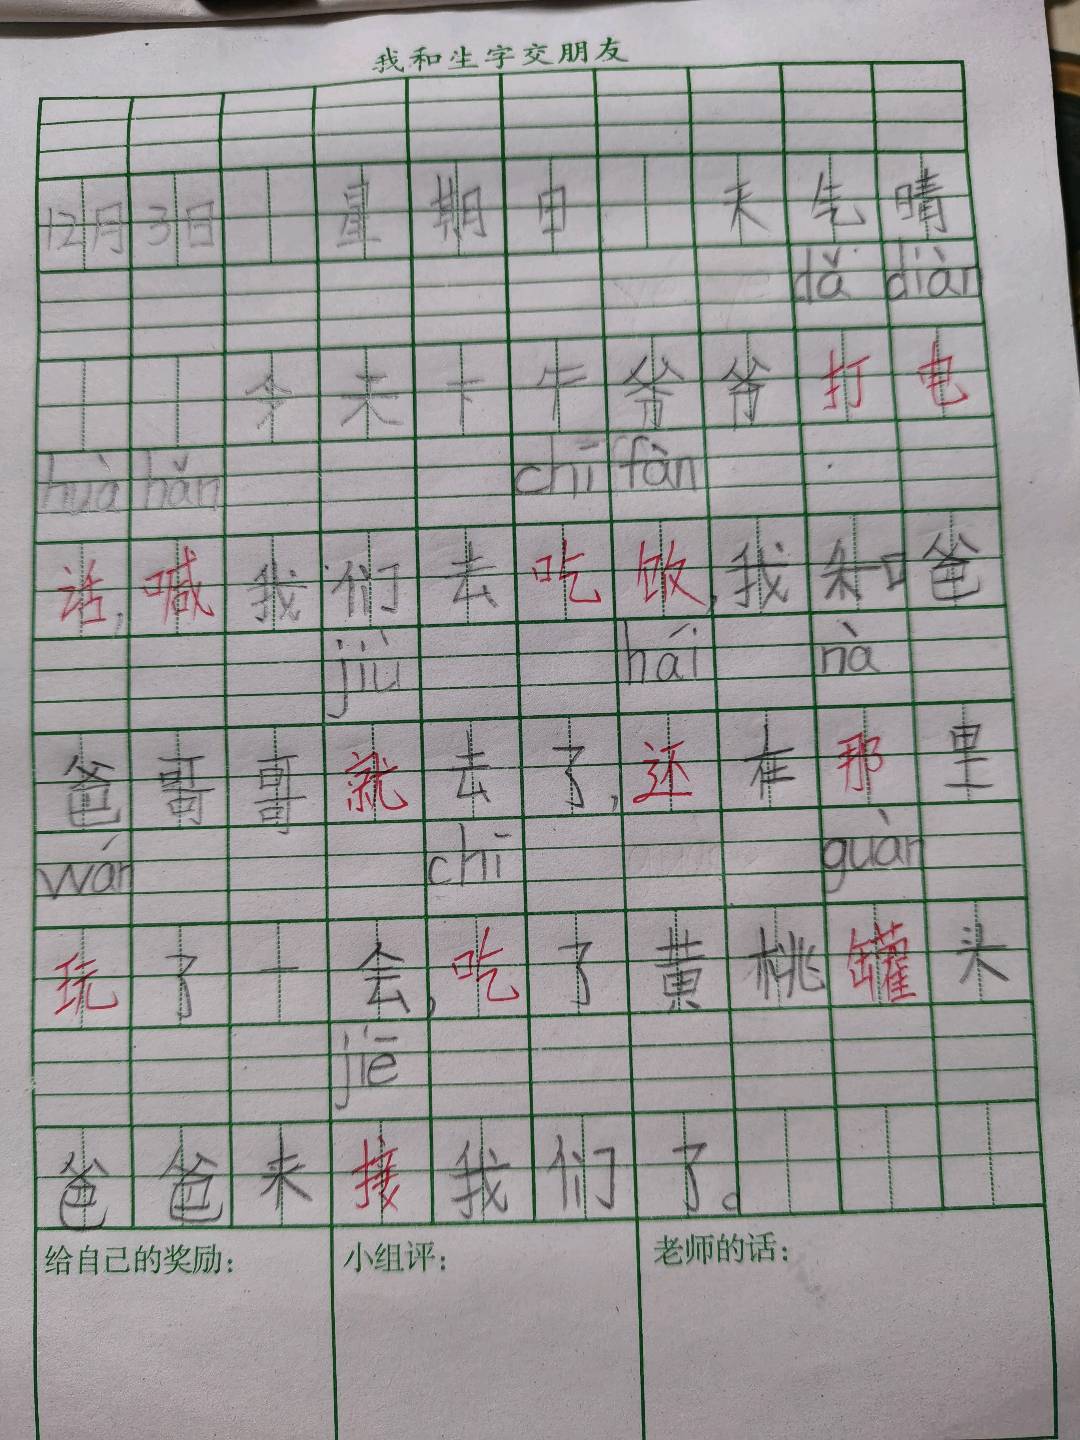 我和生字交朋友
12月3日 星期日 天气晴
dǎ diàn
今天下午爷爷打电
huà hǎn chī fàn
话,喊我们去吃饭,我和爸
jiù hái nà
爸哥哥就去了,还在那里
wán chī guàn
玩了一会,吃了黄桃罐头
jiē
爸爸来接我们了。
给自己的奖励: 小组评: 老师的话: